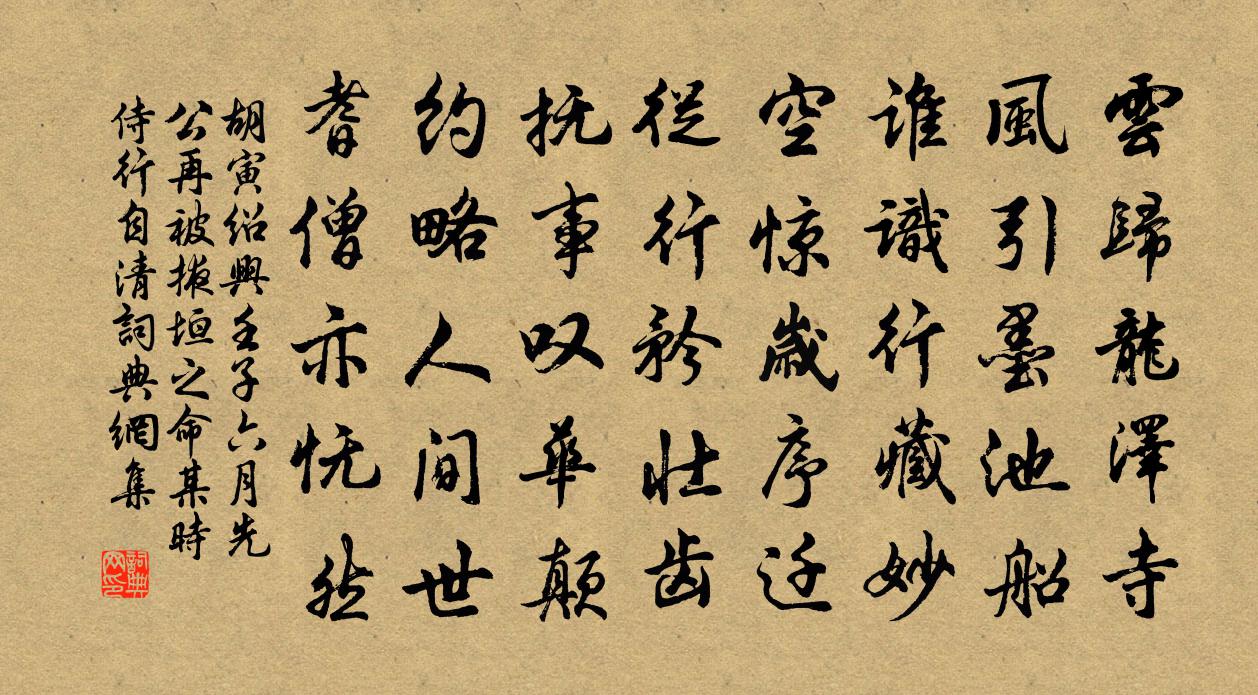 雲歸龍澤寺
風引墨池船
誰識行藏妙
空惊歲序迁
從行矜壯齿
抚事叹華颠
約略人间世
耆僧亦怃然
胡寅紹興壬子六月先
公再被掖垣之命某時
侍行自清詞典網集
詞典網印